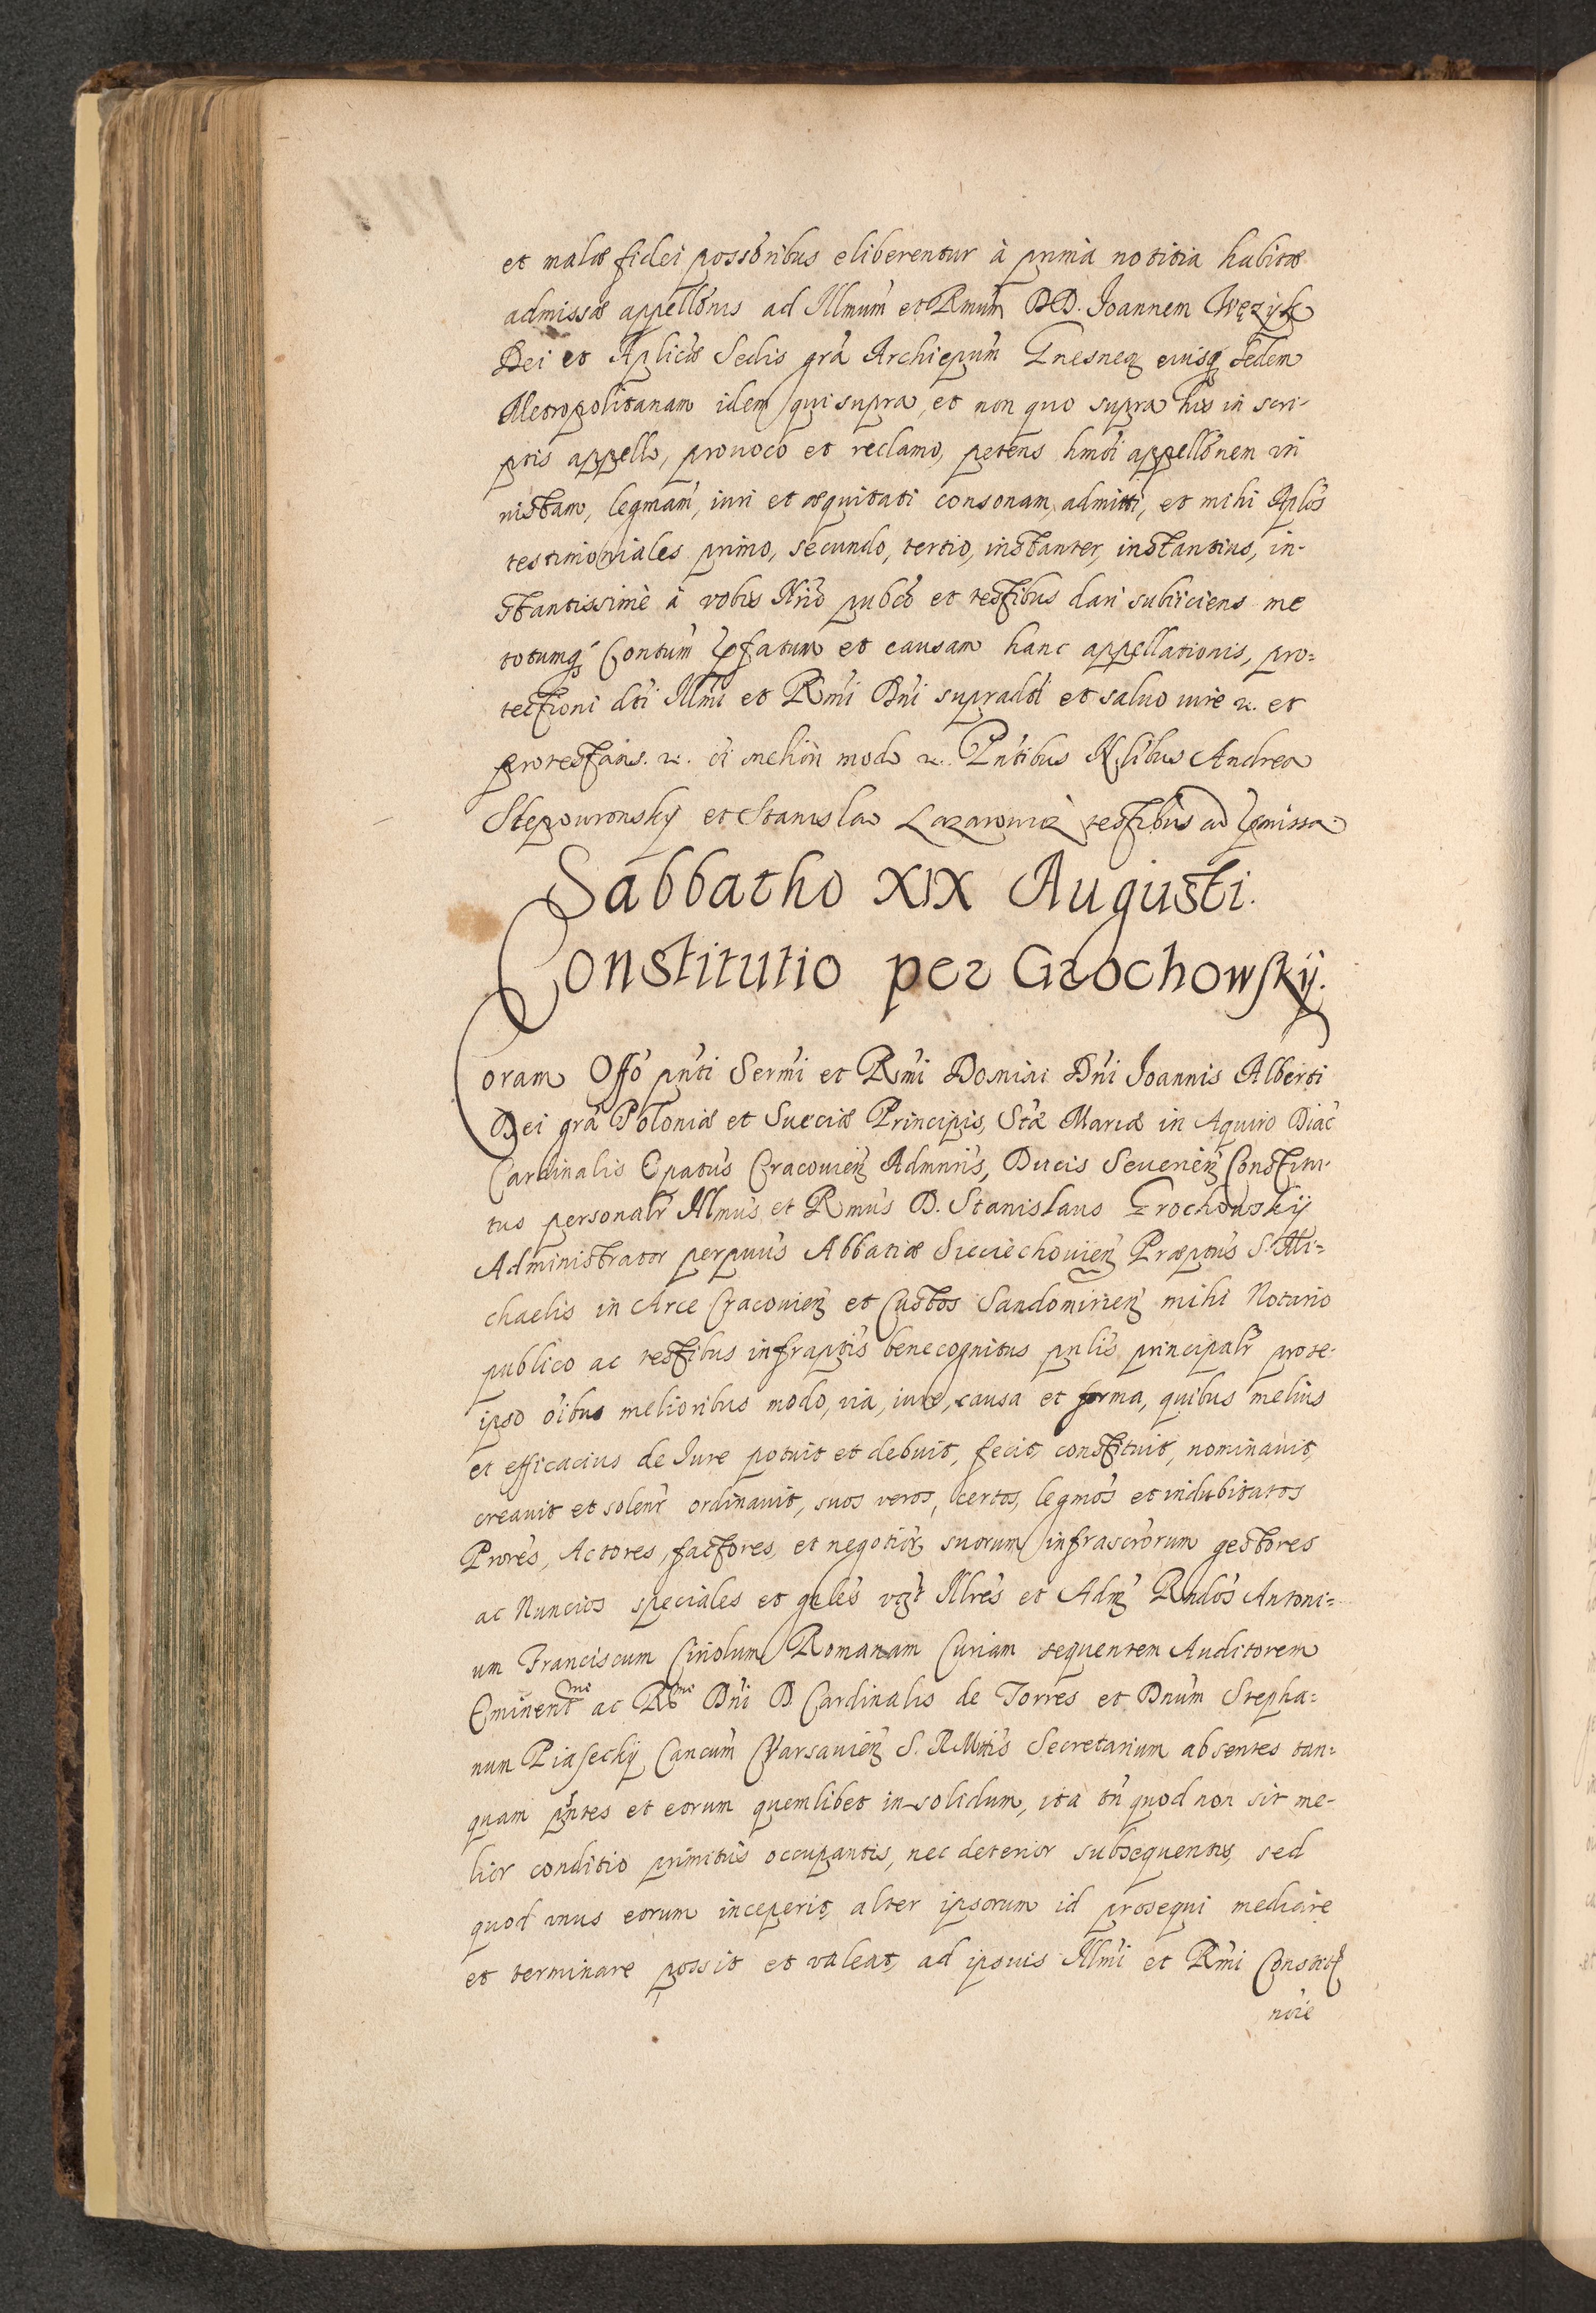 et malæ fidei possõribus eliberentur à prima notitia habitæ
admissæ appellõnis ad Illmum et Rmum DD. Joannem Wężyk
Dei et Aplicæ Sedis grã Archiepum Gnesneñ eiusq̃ sedem
Metropolitanam idem qui supra, et non quo supra his in scri-
ptis appello, prouoco et reclamo, petens hmõi appellõnem vti
iustam, legmam, iuri et æquitati consonam, admitti, et mihi Aplõs
testimoniales primo, secundo, tertio, instanter, instantius, in-
stantissimè à vobis Nrio pubco et testibus dari subijciens me
totumq̃ Contum pfatum et causam hanc appellationis, pro=
tectioni dti Illmi et Rmi Dni supradti et saluo iure &. et
protestans. &. oi meliori modo &. Pntibus Nlibus Andrea
Stepowronsky et Stanislao Lazarowicz testibus ad pmissa.
Sabbatho XIX Augusti.
Constitutio per Grochowskÿ.
Coram Offo pnti Sermi et Rmi Domini Dni Joannis Alberti
Dei grã Poloniæ et Sueciæ Principis, Stæ Mariæ in Aquiro Diac
Cardinalis Epatus Cracouieñ Admnris, Ducis Seuerieñ Constitu-
tus personalr Illmus et Rmus D. Stanislaus Grochowskÿ
Administrator perpuus Abbatiæ Sieciechouieñ Præptus S. Mi=
chaelis in Arce Cracouieñ et Custos Sandomirieñ mihi Notario
publico ac testibus infraptis benecognitus pnlis principalr prose-
ipso oibus melioribus modo, via, iure, causa et forma, quibus melius
et efficacius de Jure potuit et debuit, fecit, constituit, nominauit,
creauit et solenr ordinauit, suos veros, certos, legmos et indubitatos
Prores, Actores, factores, et negotior suorum infrascrorum gestores
ac Nuncios speciales et gnles vzt Illres et Adm Rndos Antoni=
um Franciscum Ciriolum Romanam Curiam sequentem Auditorem
Eminent.mi ac R.mi Dni D Cardinalis de Torres et Dnum Stepha=
num Piaseckÿ Cancum Varsauieñ S. R Mttis Secretarium absentes tan=
quam pntes et eorum quemlibet insolidum, ita tn quod non sit me-
lior conditio primitus occupantis, nec deterior subsequentis, sed
quod vnus eorum inceperit, alter ipsorum id prosequi mediare
et terminare possit et valeat, ad ipsius Illmi et Rmi Constit
noie